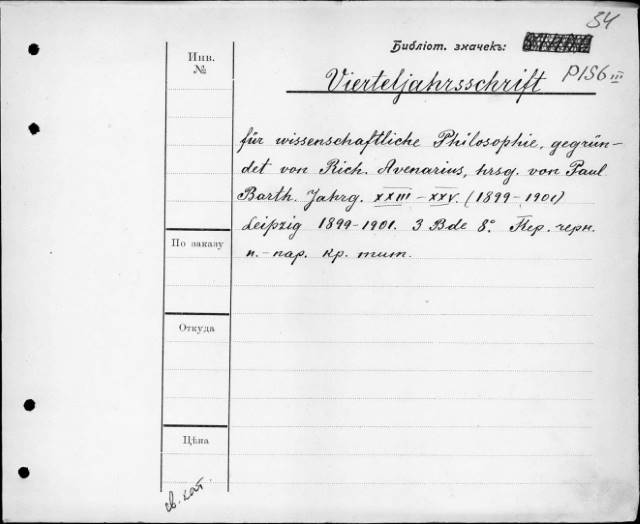 34
Библіот. значекъ:
P156 III
Инв.
№
Vierteljahrsschrift
für wissenschaftliche Philosophie, gegrün-
det von Rich. Avenarius, hrsg. von Paul
Barth. Jahrg. XXIII-XXV. (1899-1901)
Leipzig 1899-1901. 3 Bde 8°. Пер. черн.
п.-пар. кр. тит.
По заказу
Откуда
Цѣна
св. кат.